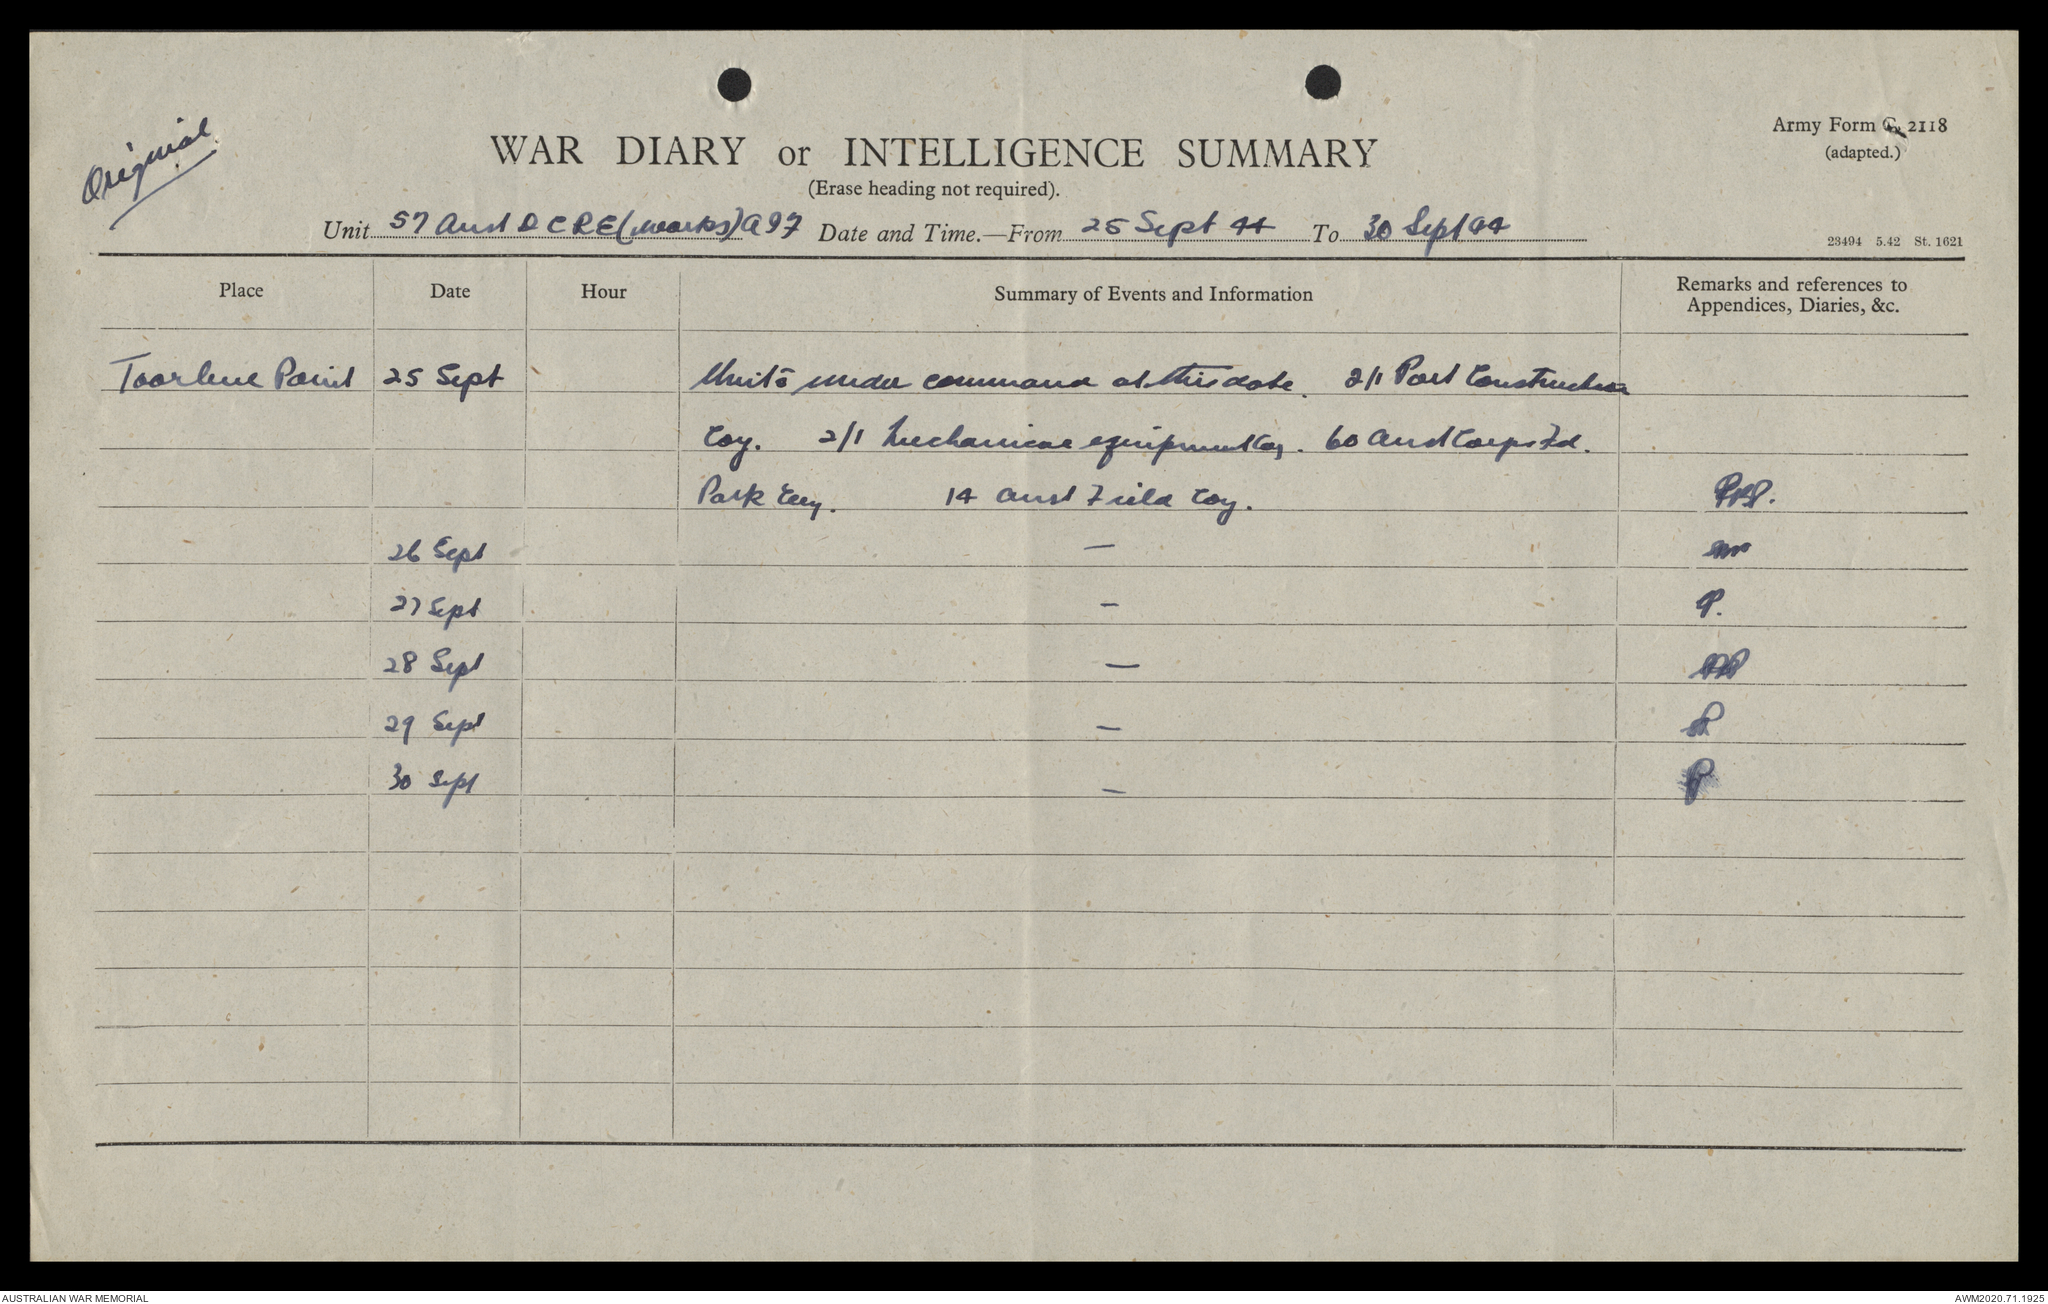 Original
WAR DIARY or INTELLIGENCE SUMMARY
Army Form C. 2118
(adapted.)
(Erase heading not required).
Unit 57 Aust D C R E (Works) A 97 Date and Time.—From 25 Sept 44 To 30 Sept 44
23494 5.42 St. 1621
Place Date Hour Summary of Events and Information Remarks and references to
Appendices, Diaries, &c.
Point 25 Sept Units under command at this date. 2/1 Port Construction
Coy. 2/1 Mechanical equipment Coy. 60 Aust Corps Fd.
Park Coy. 14 Aust Field Coy.
26 Sept —
27 Sept —
28 Sept —
29 Sept —
30 Sept —
AUSTRALIAN WAR MEMORIAL
AWM2020.71.1925